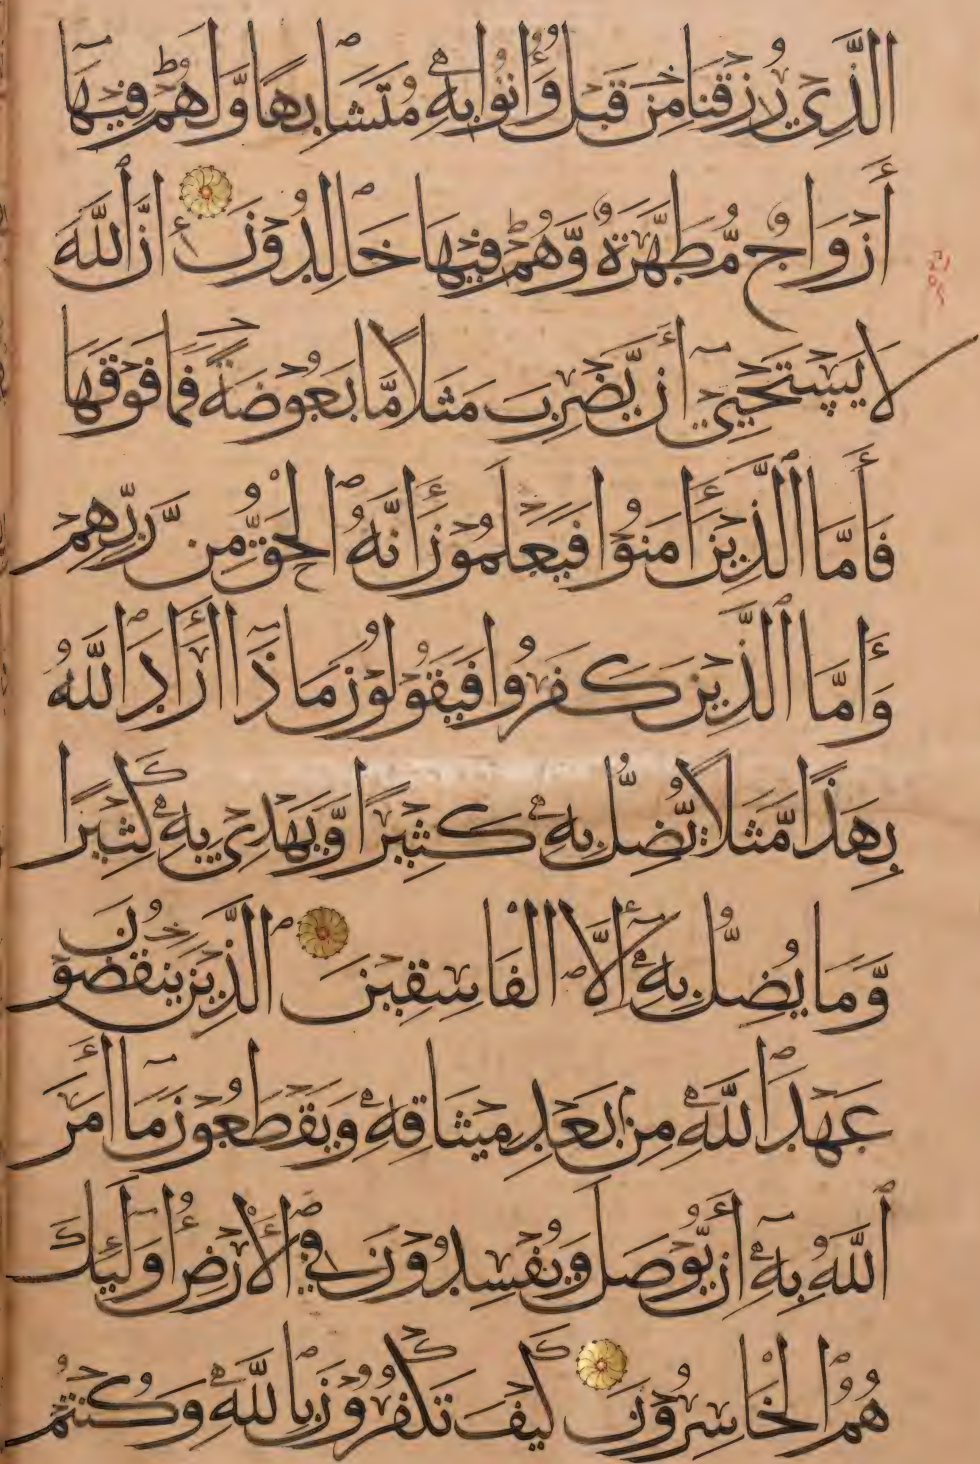 الَّذِي رُزِقْنَا مِن قَبْلُ وَأُتُوا بِهِ مُتَشَابِهًا وَّلَهُمْ فِيهَا
أَزْوَاجٌ مُّطَهَّرَةٌ وَّهُمْ فِيهَا خَالِدُونَ إِنَّ اللَّهَ
لَا يَسْتَحْيِي أَن يَّضْرِبَ مَثَلًا مَّا بَعُوضَةً فَمَا فَوْقَهَا
فَأَمَّا الَّذِينَ أَمَنُوا فَيَعْلَمُونَ أَنَّهُ الْحَقُّ مِن رَّبِّهِمْ
وَأَمَّا الَّذِينَ كَفَرُوا فَيَقُولُونَ مَاذَا أَرَادَ اللَّهُ
بِهَذَا مَثَلًا يُضِلُّ بِهِ كَثِيرًا وَّيَهْدِي بِهِ كَثِيرًا
وَّمَا يُضِلُّ بِهِ إِلَّا الْفَاسِقِينَ الَّذِينَ يَنقُضُونَ
عَهْدَ اللَّهِ مِن بَعْدِ مِيثَاقِهِ وَيَقْطَعُونَ مَا أَمَرَ
اللَّهُ بِهِ أَن يُّوصَلَ وَيُفْسِدُونَ فِي الْأَرْضِ أُولَئِكَ
هُمُ الْخَاسِرُونَ كَيْفَ تَكْفُرُونَ بِاللَّهِ وَكُنتُمْ